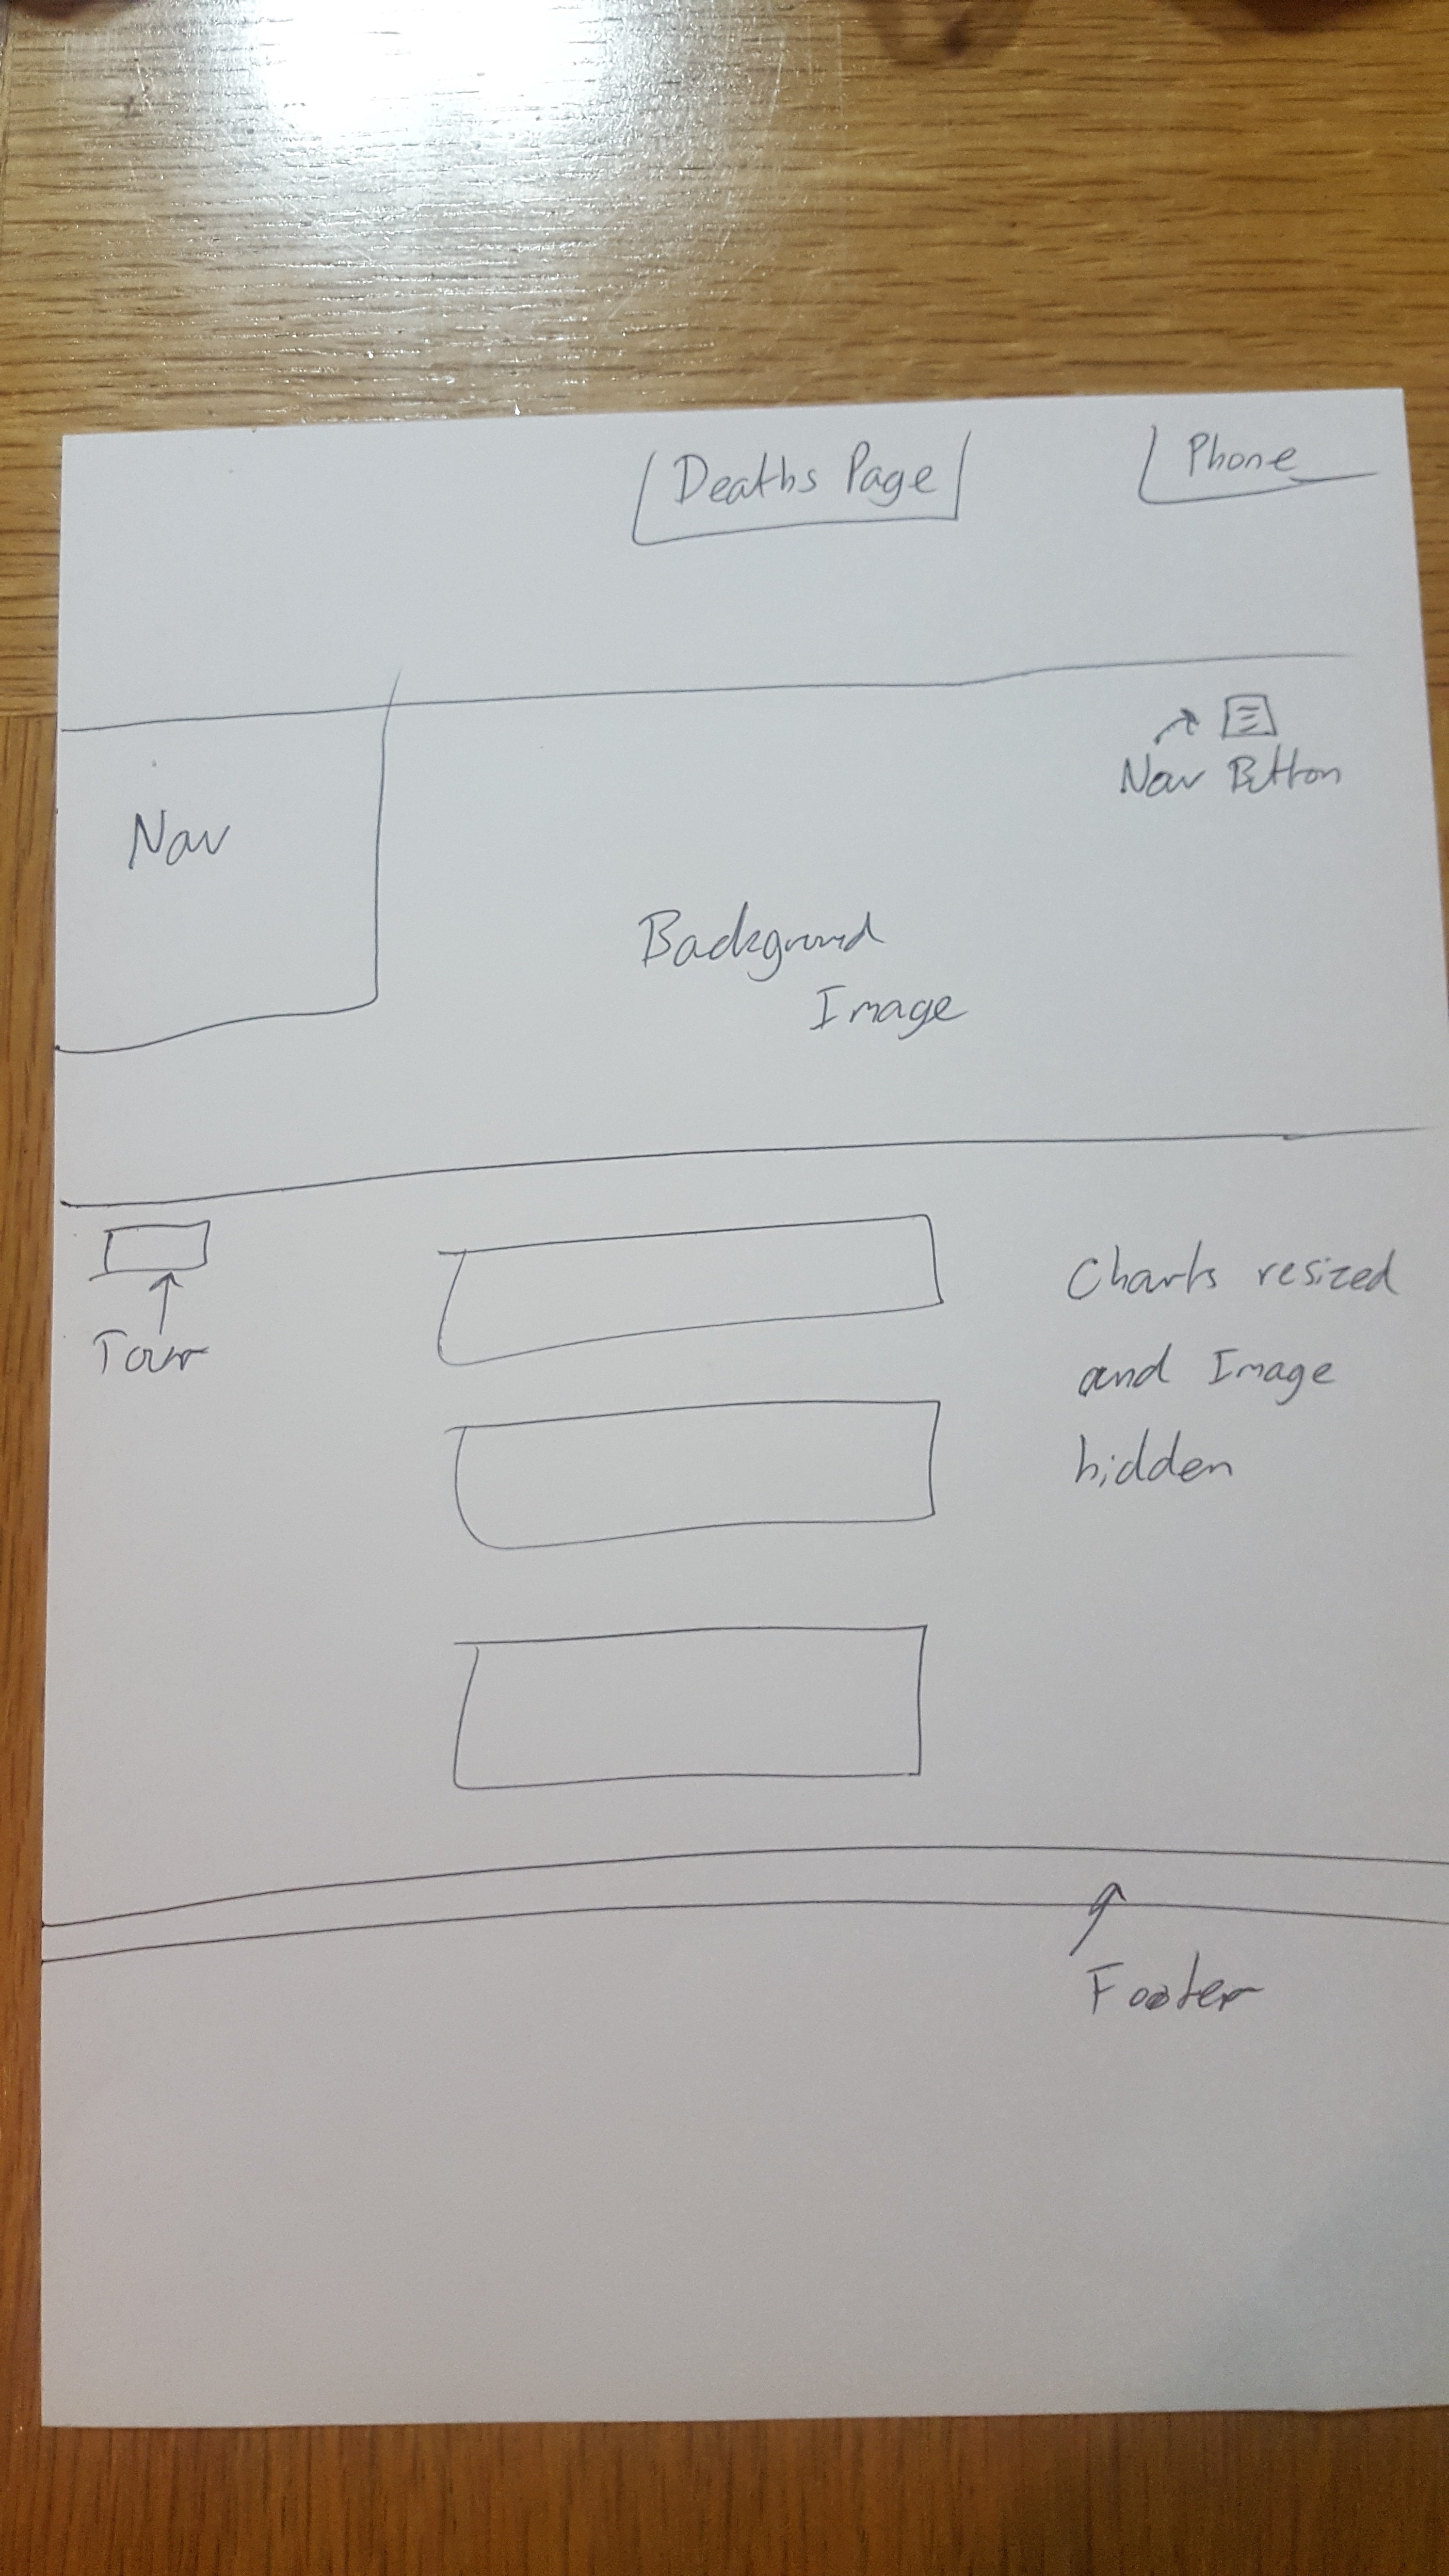 Deaths Page
Phone
Nav Button
Nav
Background
Image
Tour
Charts resized
and Image
hidden
Footer